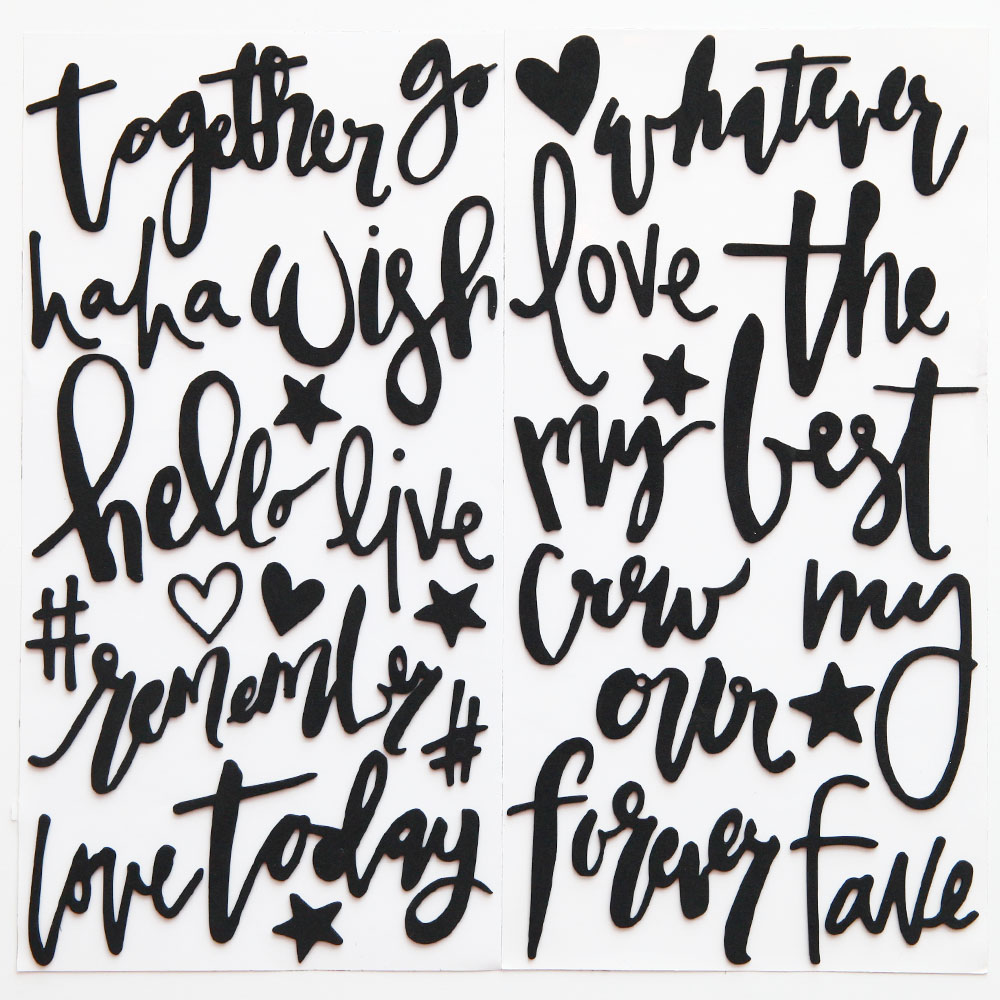 together go
haha wish
hello live
#
remember
#
love today
whatever
love the
my best
crew my
our
forever fave